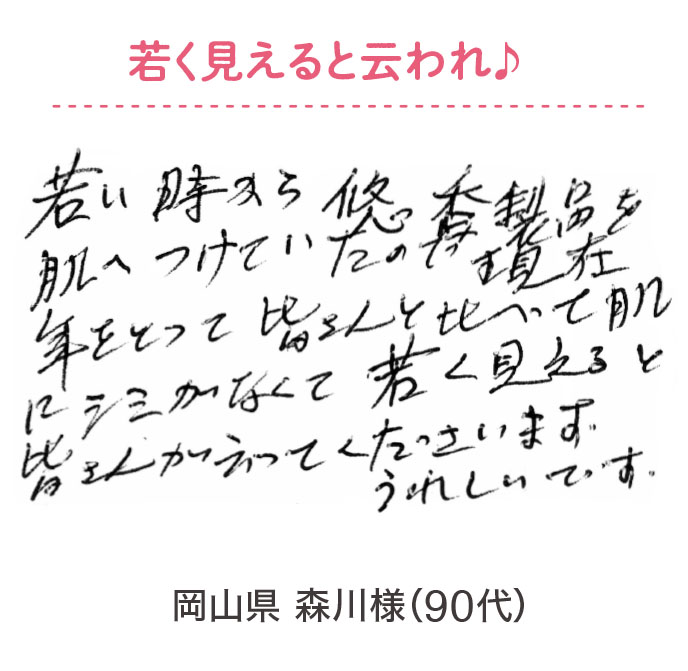 若く見えると云われ♪
若い時から悠香製品を
肌へつけていたので現在
年をとって皆さんと比べて肌
にシミがなくて若く見えると
皆さんが云ってくださいます。
うれしいです。
岡山県 森川様（90代）